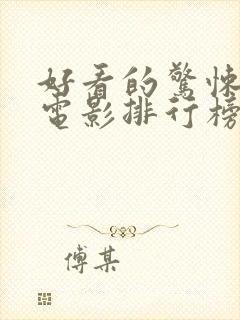 好看的驚悚
電影排行榜
傅某